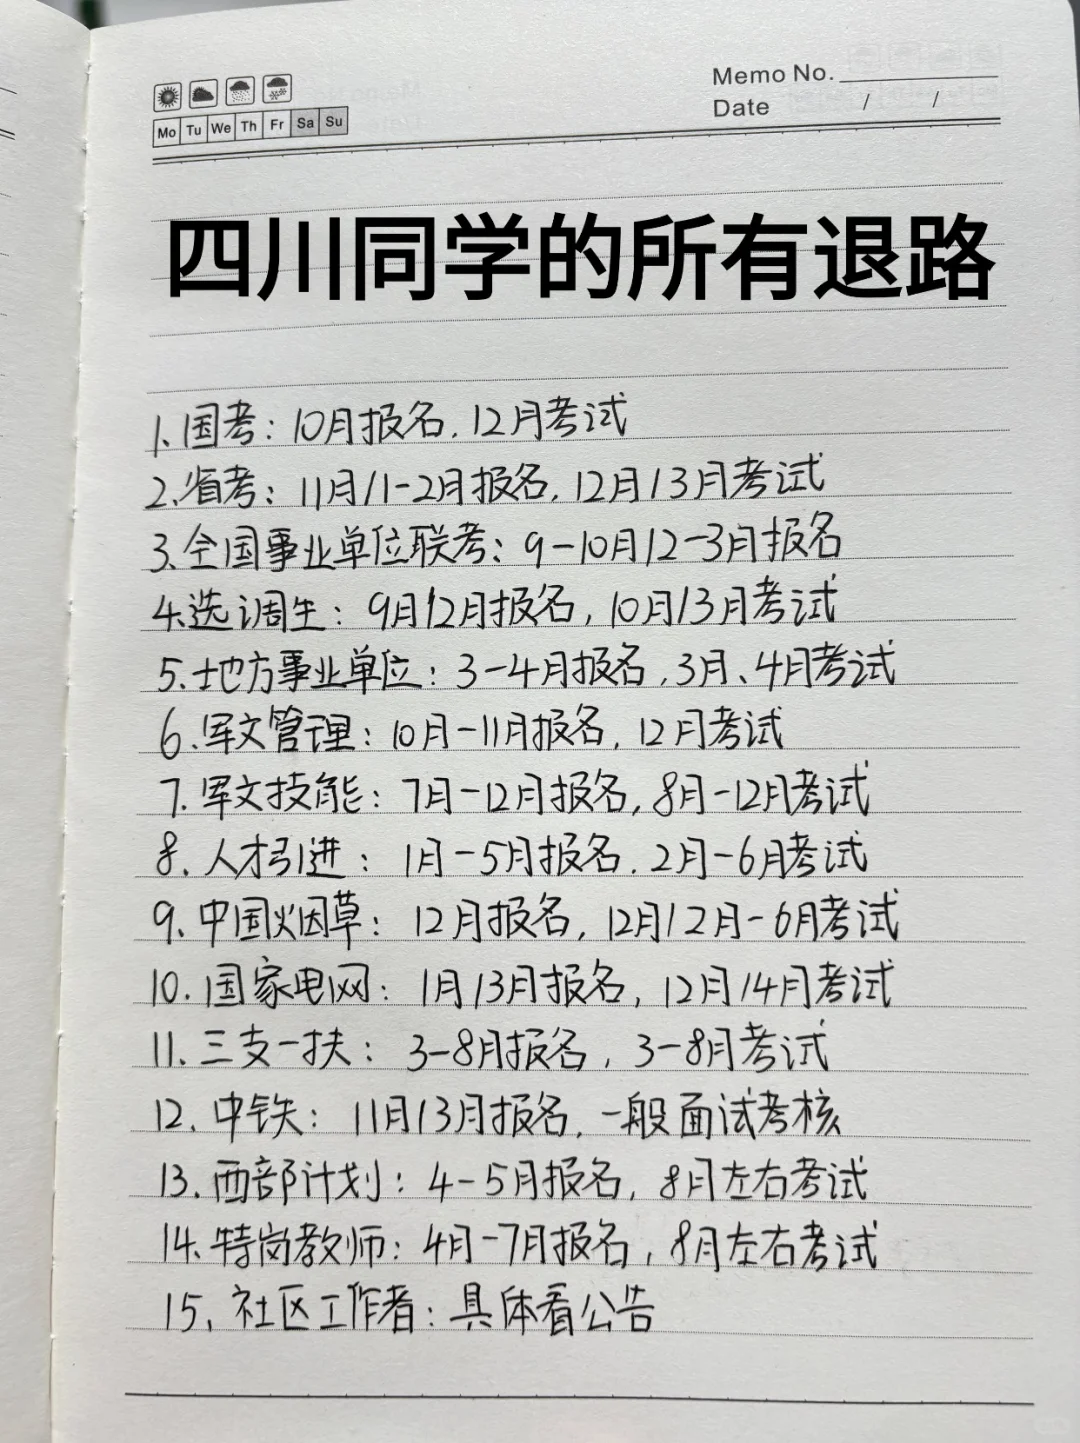 Memo No.
Mo Tu We Th Fr Sa Su
Date / /
四川同学的所有退路
1、国考：10月报名，12月考试
2、省考：11月/1-2月报名，12月/3月考试
3、全国事业单位联考：9-10月/2-3月报名
4、选调生：9月/2月报名，10月/3月考试
5、地方事业单位：3-4月报名，3月、4月考试
6、军文管理：10月-11月报名，12月考试
7、军文技能：7月-12月报名，8月-12月考试
8、人才引进：1月-5月报名，2月-6月考试
9、中国烟草：12月报名，12月/2月-6月考试
10、国家电网：1月/3月报名，12月/4月考试
11、三支一扶：3-8月报名，3-8月考试
12、中铁：11月/3月报名，一般面试考核
13、西部计划：4-5月报名，8月左右考试
14、特岗教师：4月-7月报名，8月左右考试
15、社区工作者：具体看公告